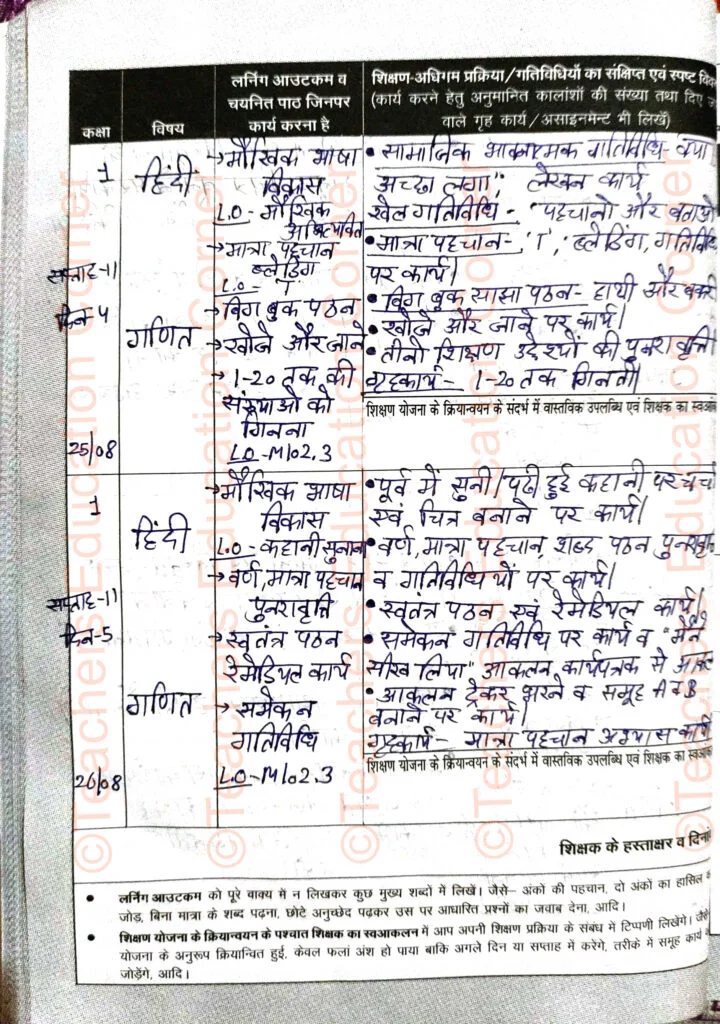 कक्षा
विषय
लर्निंग आउटकम व
चयनित पाठ जिनपर
कार्य करना है
शिक्षण-अधिगम प्रक्रिया/गतिविधियों का संक्षिप्त एवं स्पष्ट
(कार्य करने हेतु अनुमानित कालांशों की संख्या तथा दिए
वाले गृह कार्य/असाइनमेंट भी लिखें)
1
सप्ताह-11
दिन-4
25/08
हिंदी
गणित
→मौखिक भाषा
विकास
L.O-मौखिक
अभिव्यक्ति
→मात्रा पहचान
ब्लेडिंग
L.O- 'T'
→बिग बुक पठन
→खोजे और जाने
→1-20 तक की
संख्याओ को
गिनना
LO-M102.3
• सामाजिक भावात्मक गतिविधि- क्या
अच्छा लगा", लेखन कार्य
खेल गतिविधि- "पहचानो और बताओ
• मात्रा पहचान- 'T', ब्लेडिंग, गतिविधि
पर कार्य।
• बिग बुक साझा पठन- हाथी और बकरी
• खोजे और जाने पर कार्य।
• तीनो शिक्षण उद्देश्यों की पुनरावृत्ति
गृहकार्य- 1-20 तक गिनती।
शिक्षण योजना के क्रियान्वयन के संदर्भ में वास्तविक उपलब्धि एवं शिक्षक का
1
सप्ताह-11
दिन-5
26/08
हिंदी
गणित
→मौखिक भाषा
विकास
L.O-कहानी सुनाना
→वर्ण,मात्रा पहचान
पुनरावृत्ति
→स्वतंत्र पठन
रेमेडियल कार्य
→समेकन
गतिविधि
LO-M102.3
•पूर्व में सुनी/पढ़ी हुई कहानी पर चर्चा
एवं चित्र बनाने पर कार्य।
•वर्ण,मात्रा पहचान, शब्द पठन
व गतिविधियों पर कार्य।
•स्वतंत्र पठन एवं रेमेडियल कार्य।
•समेकन गतिविधि पर कार्य व "मैने
सीख लिया" आकलन कार्यपत्रक से
•आकलन ट्रेकर भरने व समूह A व B
बनाने पर कार्य।
गृहकार्य- मात्रा पहचान अभ्यास कार्य
शिक्षण योजना के क्रियान्वयन के संदर्भ में वास्तविक उपलब्धि एवं शिक्षक का
शिक्षक के हस्ताक्षर व
• लर्निंग आउटकम को पूरे वाक्य में न लिखकर कुछ मुख्य शब्दों में लिखें। जैसे– अंको की पहचान, दो अंकों का हासिल
जोड़, बिना मात्रा के शब्द पढ़ना, छोटे अनुच्छेद पढ़कर उस पर आधारित प्रश्नों का जवाब देना, आदि।
• शिक्षण योजना के क्रियान्वयन के पश्चात शिक्षक का स्वआकलन में आप अपनी शिक्षण प्रक्रिया के संबंध में टिप्पणी लिखेंगे।
योजना के अनुरूप क्रियान्वित हुई, केवल फलां अंश हो पाया बाकि अगले दिन या सप्ताह में करेंगे, तरीके में समूह कार्य
जोड़ेंगे, आदि।
©Teachers Education Corner
©Teachers Education Corner
©Teachers Education Corner
©Teachers Education Corner
©Teachers Education Corner